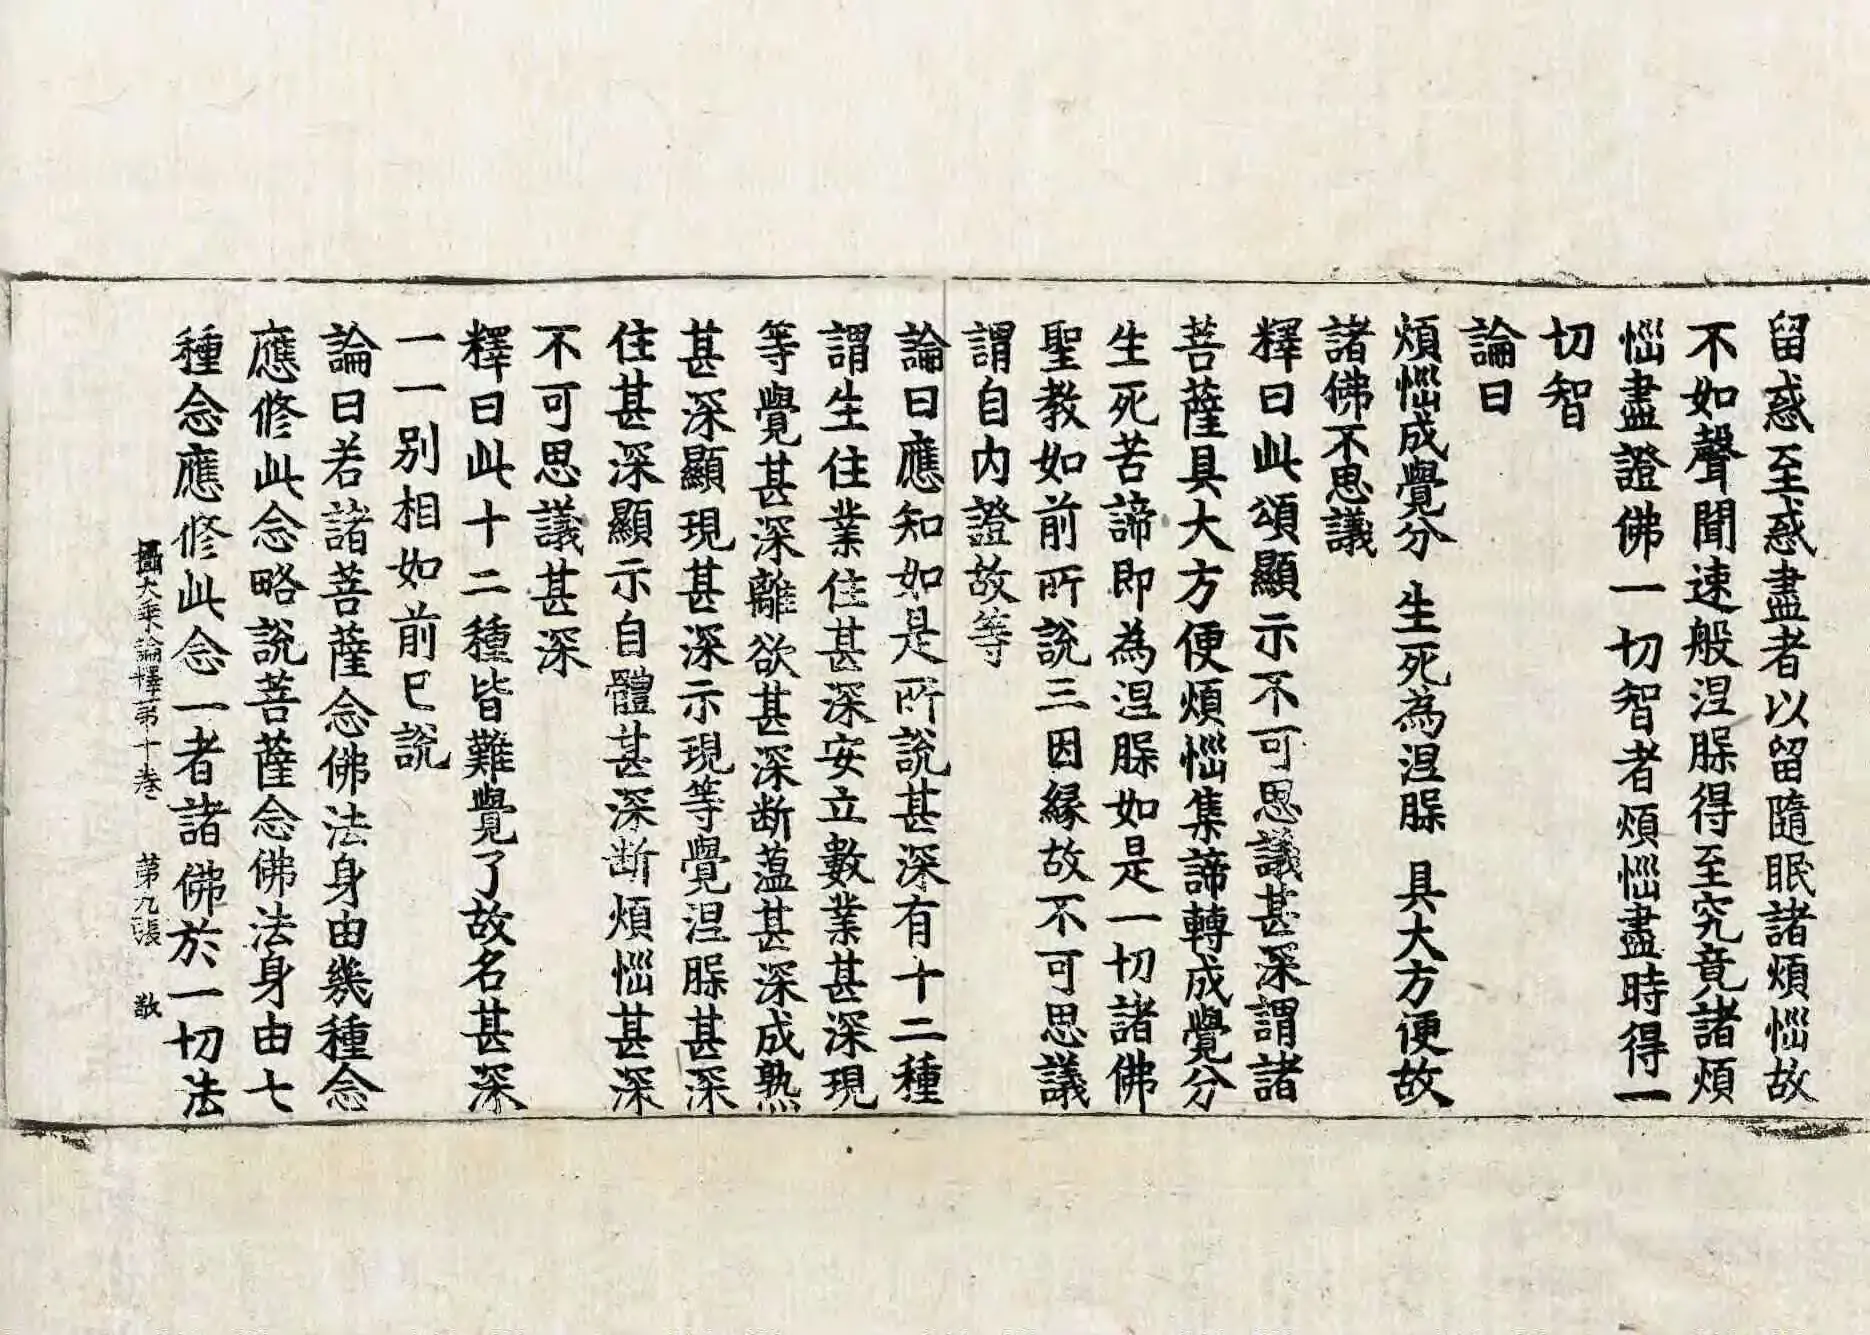 留惑至惑盡者以留隨眠諸煩惱故
不如聲聞速般涅槃得至究竟諸煩
惱盡證佛一切智者煩惱盡時得一
切智
論曰
煩惱成覺分 生死為涅槃 具大方便故
諸佛不思議
釋曰此頌顯示不可思議甚深謂諸
菩薩具大方便煩惱集諦轉成覺分
生死苦諦即為涅槃如是一切諸佛
聖教如前所說三因緣故不可思議
謂自內證故等
論曰應知如是所說甚深有十二種
謂生住業住甚深安立數業甚深現
等覺甚深離欲甚深斷蘊甚深成熟
甚深顯現甚深示現等覺涅槃甚深
住甚深顯示自體甚深斷煩惱甚深
不可思議甚深
釋曰此十二種皆難覺了故名甚深
一一別相如前已說
論曰若諸菩薩念佛法身由幾種念
應修此念略說菩薩念佛法身由七
種念應修此念一者諸佛於一切法
攝大乘論釋第十卷 第九張 敢